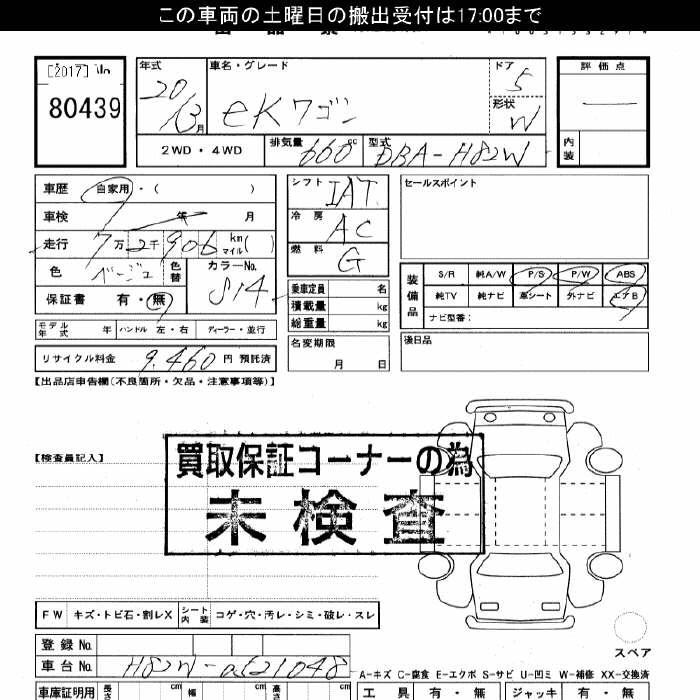 この車両の土曜日の搬出受付は17:00まで
[2017] No
80439
年式 20 13月
車名・グレード eKワゴン
ドア 5
形状 W
評価点
内装
2WD・4WD
排気量 660cc
型式 DBA-H82W
車歴 自家用・( )
車検 年 月
走行 7万2千906 km マイル( )
色 ベージュ 色替
カラーNo. S14
保証書 有・無
モデル年式 年
ハンドル 左・右
ディーラー・並行
リサイクル料金 9.460円 預託済
シフト IAT
冷房 AC
燃料 G
乗車定員 名
積載量 kg
総重量 kg
名変期限 月 日
セールスポイント
装備品
S/R 純A/W P/S P/W ABS
純TV 純ナビ 革シート 外ナビ エアB
ナビ型番:
後日品
【出品店申告欄(不良箇所・欠品・注意事項等)】
【検査員記入】
買取保証コーナーの為
未検査
FW キズ・トビ石・割レX
シート内装 コゲ・穴・汚レ・シミ・破レ・スレ
スペア
登録No.
車台No. H82W-
A-キズ C-腐食 E-エクボ S-サビ U-凹ミ W-補修 XX-交換済
車庫証明用 長さ cm 幅 cm 高さ cm
工具 有・無
ジャッキ 有・無